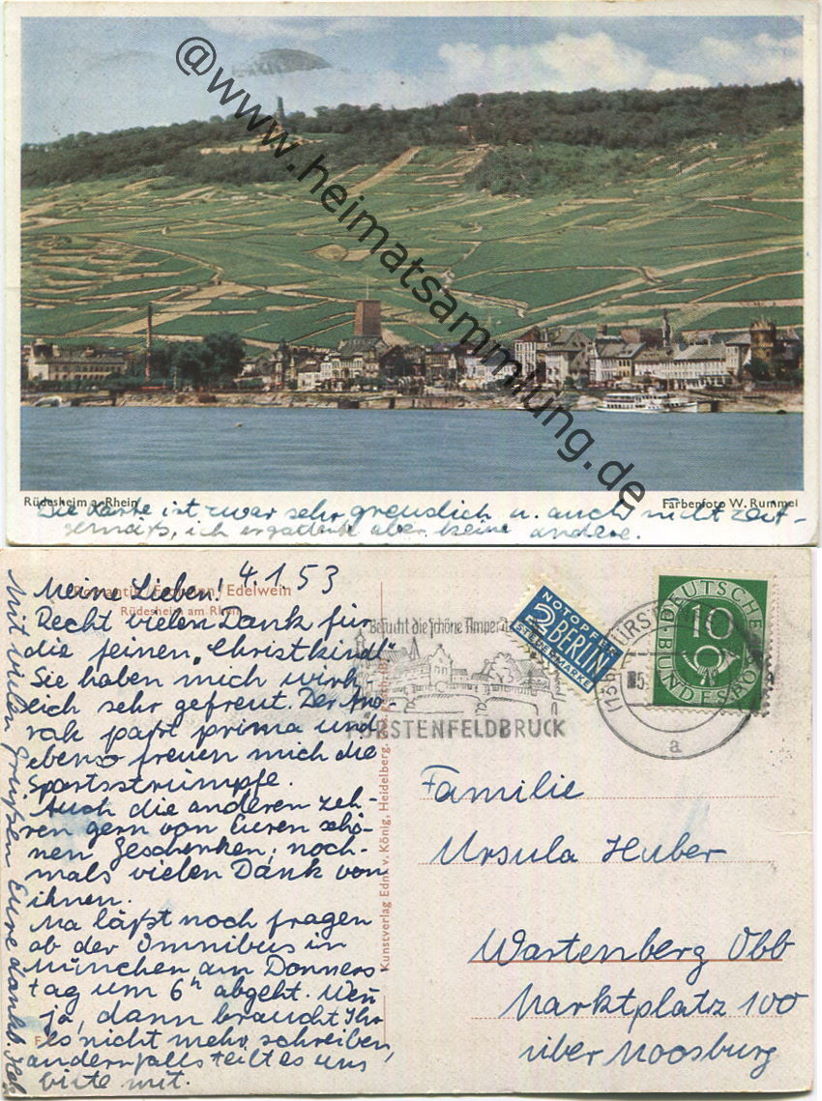 @www.heimatsammlung.de
Rüdesheim a. Rhein
Farbenfoto W. Rummel
Die Karte ist zwar sehr greuslich u. auch nicht zeit-
gemäß, ich ergatterte aber keine andere.
Meine Lieben! 4.1.53
Recht vielen Dank für
die feinen „Christkindl"
Sie haben mich wirk-
lich sehr gefreut. Der Ano-
rak paßt prima und
ebenso freuen mich die
Sportsstrümpfe.
Auch die anderen zeh-
ren gern von Euren schö-
nen Geschenken; noch-
mals vielen Dank von
ihnen.
Ma läßt noch fragen
ob der Omnibus in
München am Donners
tag um 6h abgeht. Wenn
ja, dann braucht Ihr
es nicht mehr schreiben,
andernfalls teilt es uns
bitte mit.
Mit vielen Grüßen Eure dankb.
Edelwein
Rüdesheim am Rhein
Kunstverlag Edm. v. König, Heidelberg
Besucht die schöne Amper
FÜRSTENFELDBRUCK
NOTOPFER
2 BERLIN
STEUERMARKE
DEUTSCHE
10
BUNDESPOST
a
Familie
Ursula Huber
Wartenberg Obb
Marktplatz 100
über Moosburg